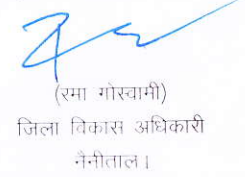 (रमा गोस्वामी)
जिला विकास अधिकारी
नैनीताल।